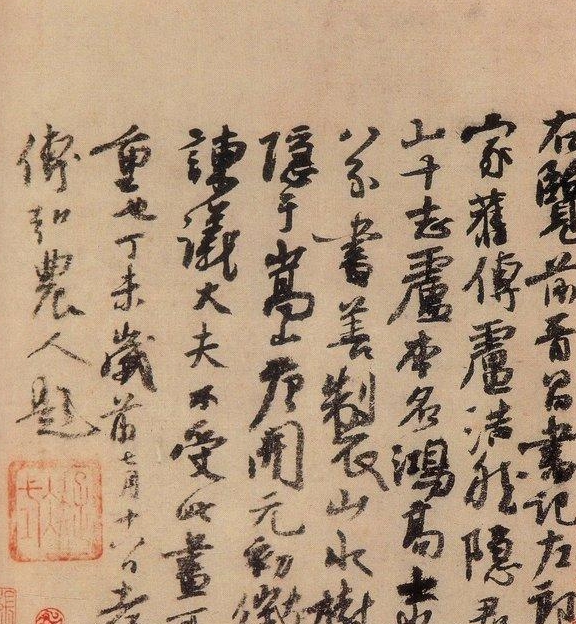 右覽前晉昌書記左郎
家舊傳盧浩然隱君
山十志盧本名鴻高士
八分書善製山水樹
隱于嵩山唐開元初徵
諫議大夫不受此畫可
重也丁未歲前七月十八日老
傅弘農人題